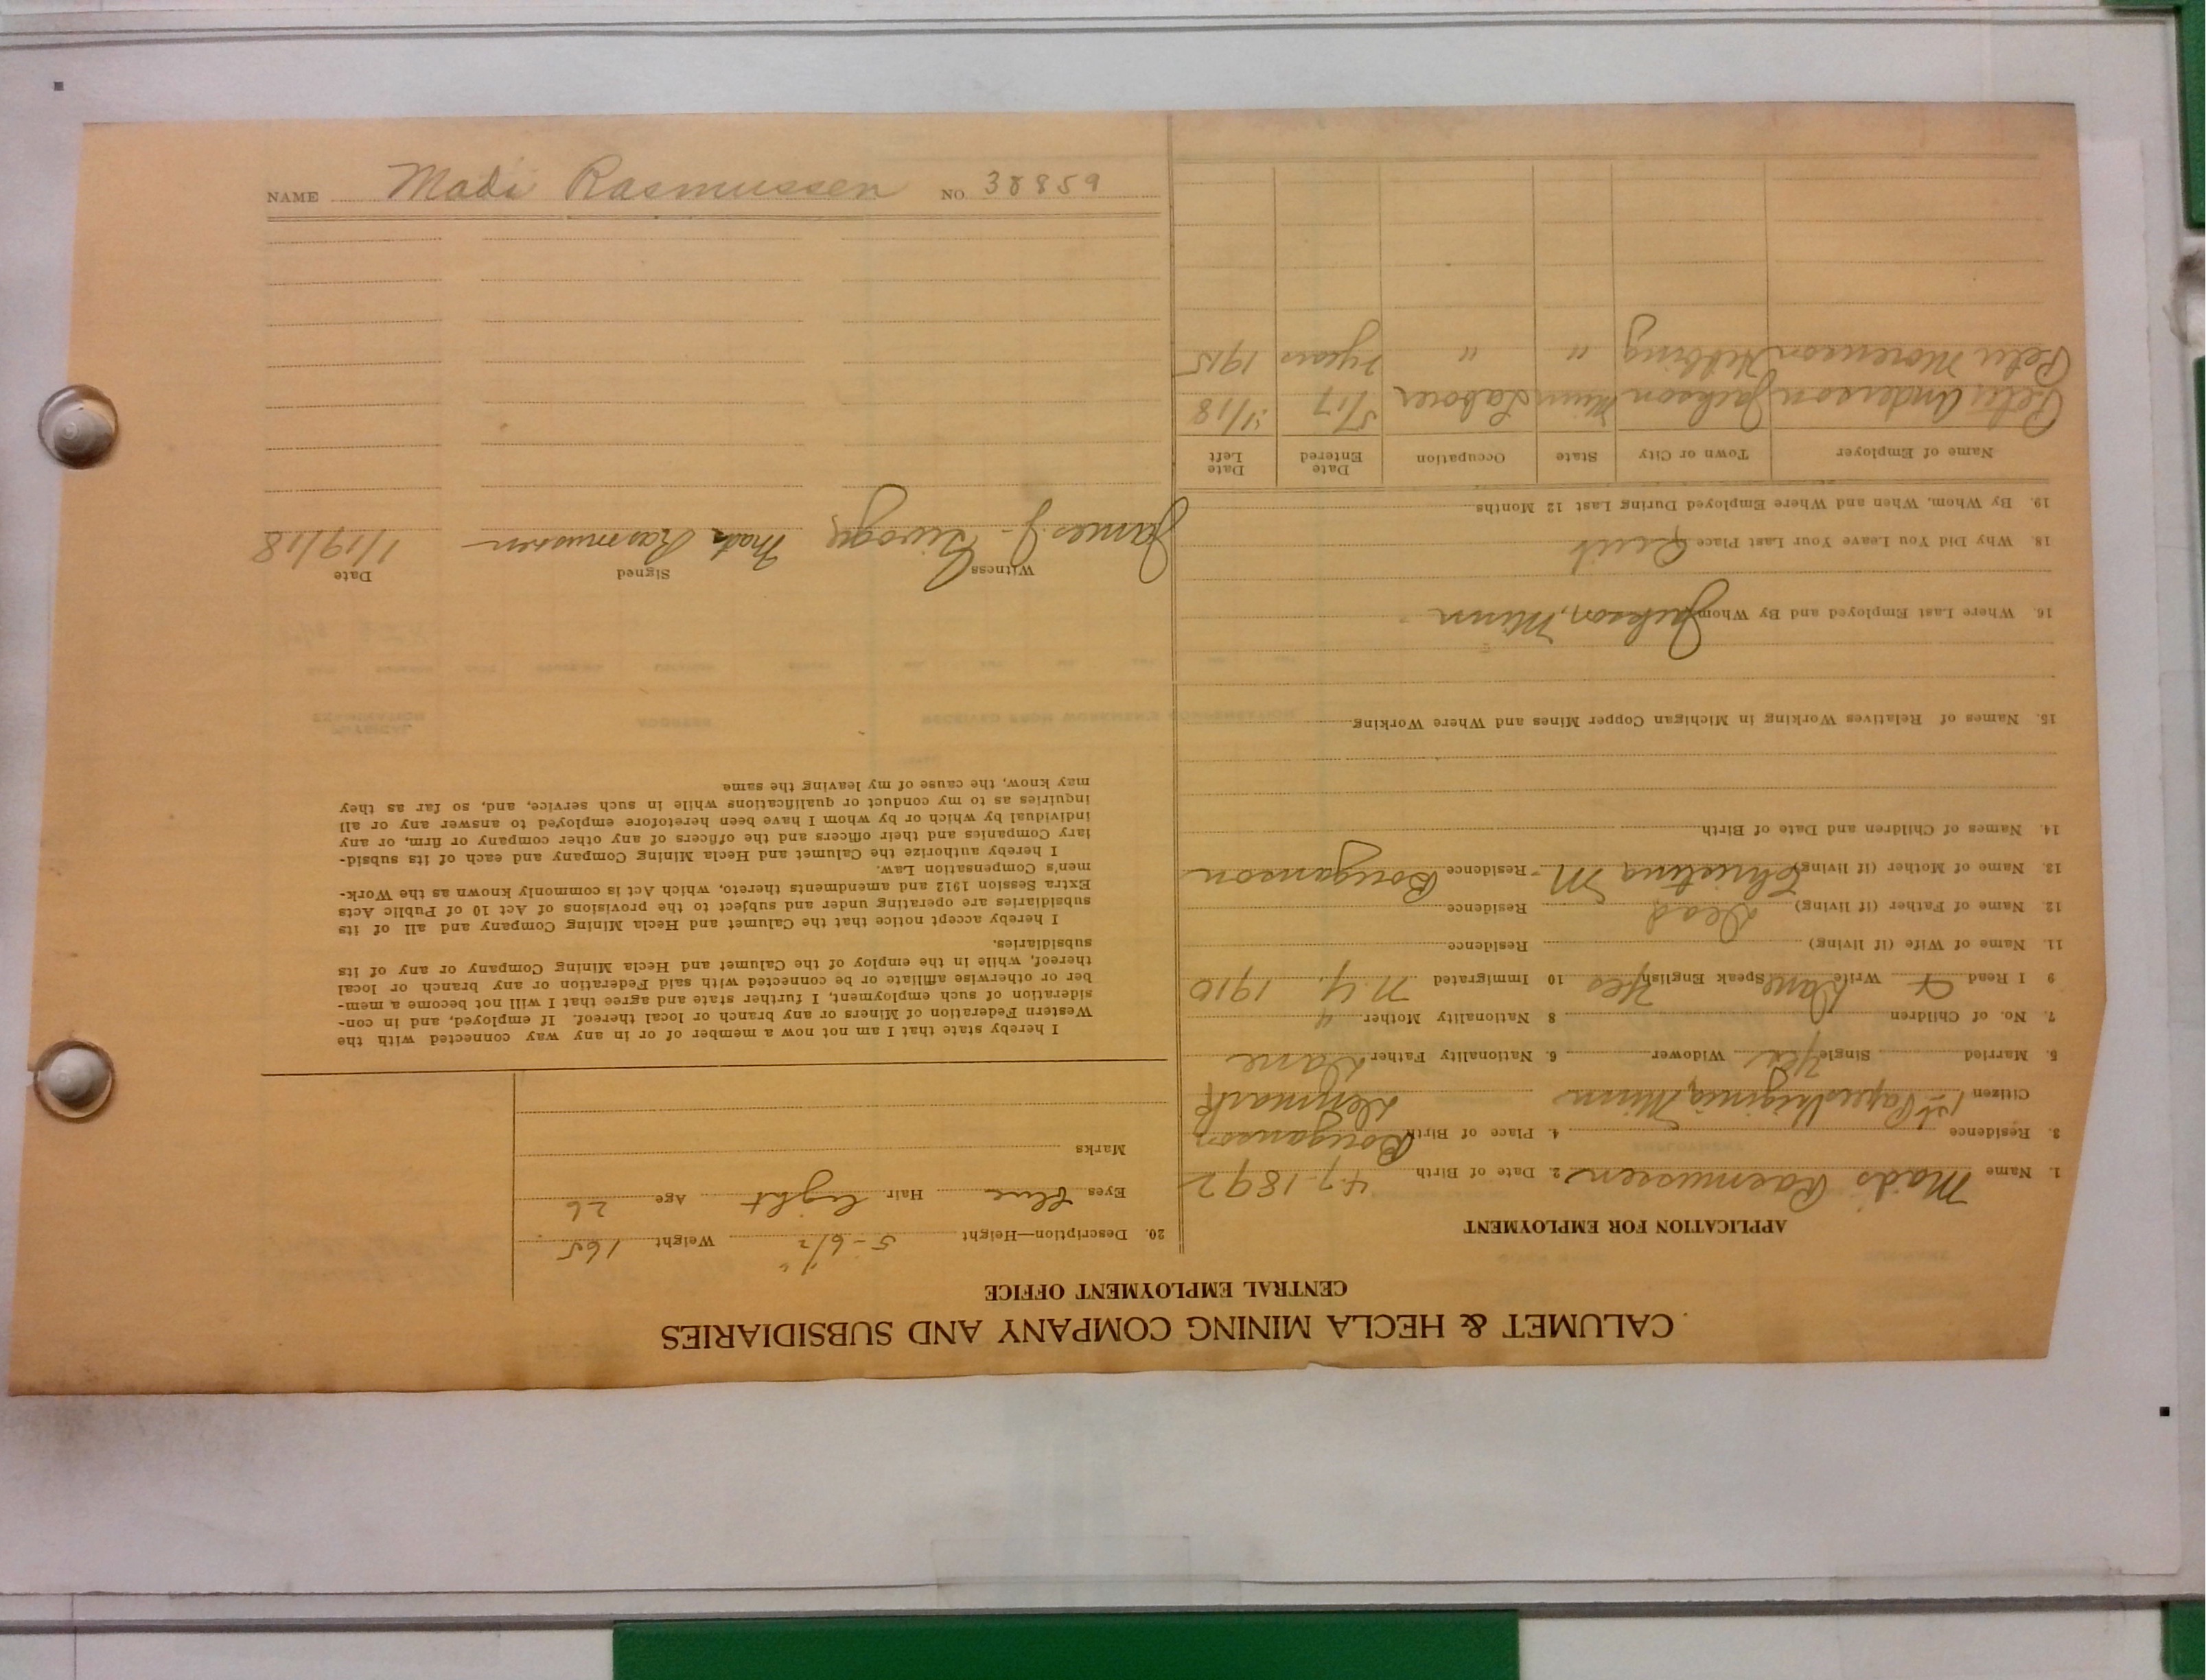 CALUMET & HECLA MINING COMPANY AND SUBSIDIARIES
CENTRAL EMPLOYMENT OFFICE
APPLICATION FOR EMPLOYMENT
1. Name Mads Rasmussen 2. Date of Birth 4-7-1892
3. Residence 4. Place of Birth Denmark
Citizen 1st Papers Virginia, Minn
5. Married Single Yes Widower 6. Nationality Father Dane
7. No. of Children 8 Nationality Mother "
9 I Read & Write Dane Speak English Yes 10 Immigrated N.Y. 1910
11. Name of Wife (if living) Residence
12. Name of Father (if living) Dead Residence
13. Name of Mother (if living) Christina M Residence
14. Names of Children and Date of Birth
15. Names of Relatives Working in Michigan Copper Mines and Where Working
16. Where Last Employed and By Whom Jackson, Minn
18. Why Did You Leave Your Last Place Quit
19. By Whom, When and Where Employed During Last 12 Months
Name of Employer Town or City State Occupation Date Entered Date Left
Peter Anderson Jackson Minn Laborer 5/17 1/18
Peter Hibbing " " 2 years 1915
20. Description—Height 5-6 1/2" Weight 165
Eyes Blue Hair light Age 26
Marks
I hereby state that I am not now a member of or in any way connected with the
Western Federation of Miners or any branch or local thereof. If employed, and in con-
sideration of such employment, I further state and agree that I will not become a mem-
ber or otherwise affiliate or be connected with said Federation or any branch or local
thereof, while in the employ of the Calumet and Hecla Mining Company or any of its
subsidiaries.
I hereby accept notice that the Calumet and Hecla Mining Company and all of its
subsidiaries are operating under and subject to the provisions of Act 10 of Public Acts
Extra Session 1912 and amendments thereto, which Act is commonly known as the Work-
men's Compensation Law.
I hereby authorize the Calumet and Hecla Mining Company and each of its subsid-
iary Companies and their officers and the officers of any other company or firm, or any
individual by which or by whom I have been heretofore employed to answer any or all
inquiries as to my conduct or qualifications while in such service, and, so far as they
may know, the cause of my leaving the same
Witness Signed Date
James J. Mads Rasmussen 1/19/18
NAME Mads Rasmussen NO. 38859